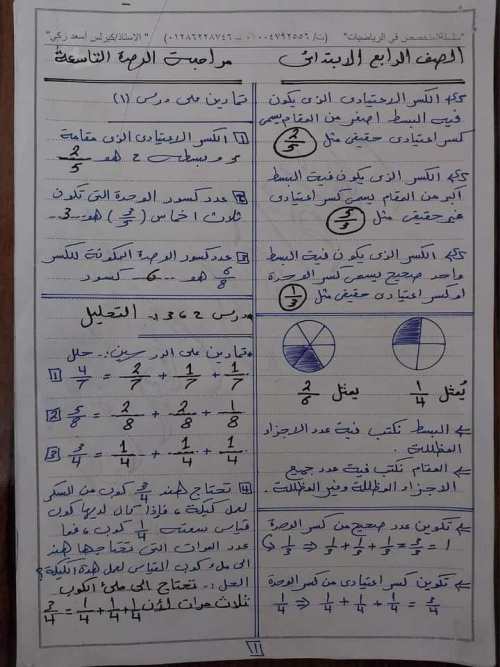 "سلسلة المتخصص في الرياضيات" (ت/ ٠١٠٠٤٧٩٢٥٥٦ – ٠١٢٨٦٢٢٨٧٤٦) "الاستاذ/كيرلس أسعد زكي"
الصف الرابع الابتدائى مراجعة الوحدة التاسعة
الكسر الاعتيادى الذى يكون
فيه البسط أصغر من المقام يسمى
كسر اعتيادى حقيقى مثل 2/5
الكسر الذى يكون فيه البسط
أكبر من المقام يسمى كسر اعتيادى
غير حقيقى مثل 5/3
الكسر الذى يكون فيه البسط
واحد صحيح يسمى كسر الوحدة
او كسر اعتيادى حقيقى مثل 1/3
يمثل 1/4 يمثل 2/6
⇐ البسط نكتب فيه عدد الاجزاء
المظللة.
⇐ المقام نكتب فيه عدد جميع
الاجزاء المظللة وغير المظللة.
⇐ تكوين عدد صحيح من كسر الوحدة
1/3 ⇒ 1/3 + 1/3 + 1/3 = 3/3 = 1
⇐ تكوين كسر اعتيادى من كسر الوحدة
1/4 ⇒ 1/4 + 1/4 + 1/4 = 3/4
تمارين على درس (١)
1 الكسر الاعتيادى الذى مقامة
5 وبسطه 2 هو 2/5
2 عدد كسور الوحدة التى تكون
ثلاث اخماس (3/5) هو 3
3 عدد كسور الوحدة المكونة للكسر
6/8 هو 6 كسور
درس 2 و 3 التحليل
تمارين على الدرسين:- حلل
1 4/7 = 2/7 + 1/7 + 1/7
2 5/8 = 2/8 + 2/8 + 1/8
3 3/4 = 1/4 + 1/4 + 1/4
4 تحتاج هند 3/4 كوب من السكر
لعمل كيكة، فإذا كان لديها كوب
قياس سعته 1/4 كوب، فما
عدد المرات التى تحتاجها هند
الى ملء كوب القياس لعمل هذة الكيكة؟
الحل:- تحتاج الى ملئ الكوب
ثلاث مرات لأن 1/4 + 1/4 + 1/4 = 3/4
11